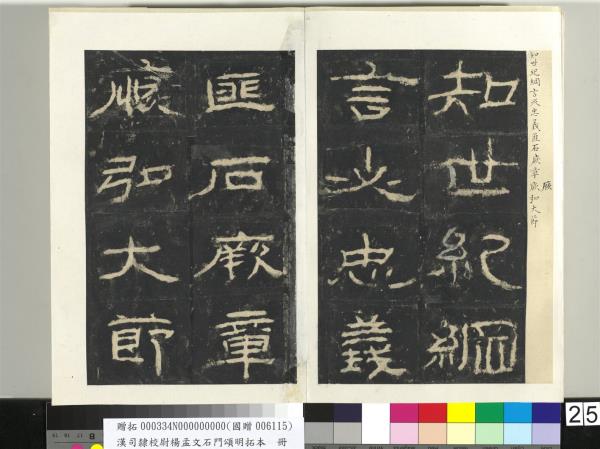 知世紀綱言必忠義匪石厥章恢弘大節
厥
知世紀綱
言必忠義
匪石厥章
恢弘大節
贈拓 000334N000000000(國贈 006115)
漢司隸校尉楊孟文石門頌明拓本 冊
8
25